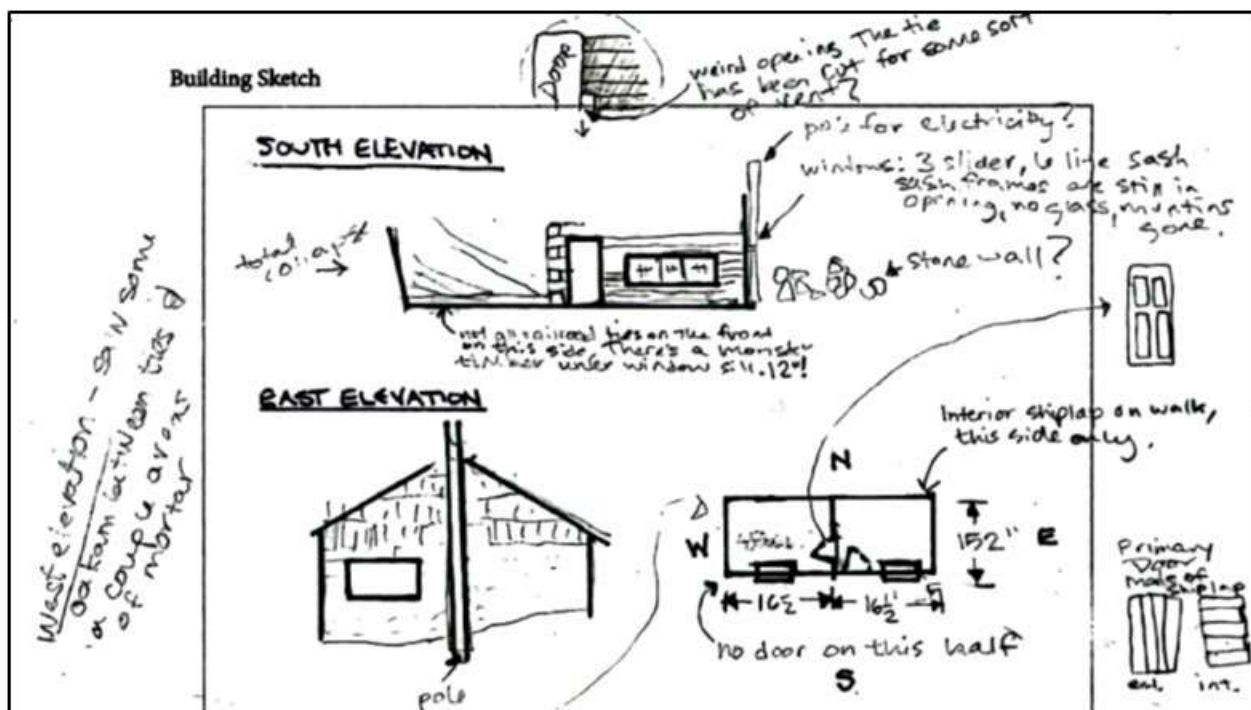 Building Sketch
Door
weird opening The tie
has been cut for some sort
of vent?
SOUTH ELEVATION
pole for electricity?
windows: 3 slider, 6 lite sash
sash frames are still in
opening, no glass, muntins
gone.
total
stone wall?
not all railroad ties on the front
on this side. There's a monster
timber under window sill. 12"!
EAST ELEVATION
pole
West elevation -
between ties
a couple
of mortar
Interior shiplap on walls,
this side only.
N
W
152"
E
16½
16½'
no door on this half
S
Primary
Door
made of
shiplap
ext.
int.